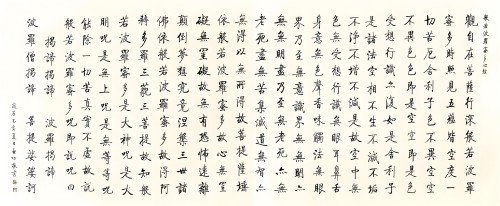 般若波羅蜜多心經
觀自在菩薩行深般若波羅
蜜多時照見五蘊皆空度一
切苦厄舍利子色不異空空
不異色色即是空空即是色
受想行識亦復如是舍利子
是諸法空相不生不滅不垢
不淨不增不減是故空中無
色無受想行識無眼耳鼻舌
身意無色聲香味觸法無眼
界乃至無意識界無無明亦
無無明盡乃至無老死亦無
老死盡無苦集滅道無智亦
無得以無所得故菩提薩埵
依般若波羅蜜多故心無罣
礙無罣礙故無有恐怖遠離
顛倒夢想究竟涅槃三世諸
佛依般若波羅蜜多故得阿
耨多羅三藐三菩提故知般
若波羅蜜多是大神咒是大
明咒是無上咒是無等等咒
能除一切苦真實不虛故說
般若波羅蜜多咒即說咒曰
揭諦揭諦 波羅揭諦
波羅僧揭諦 菩提娑婆訶